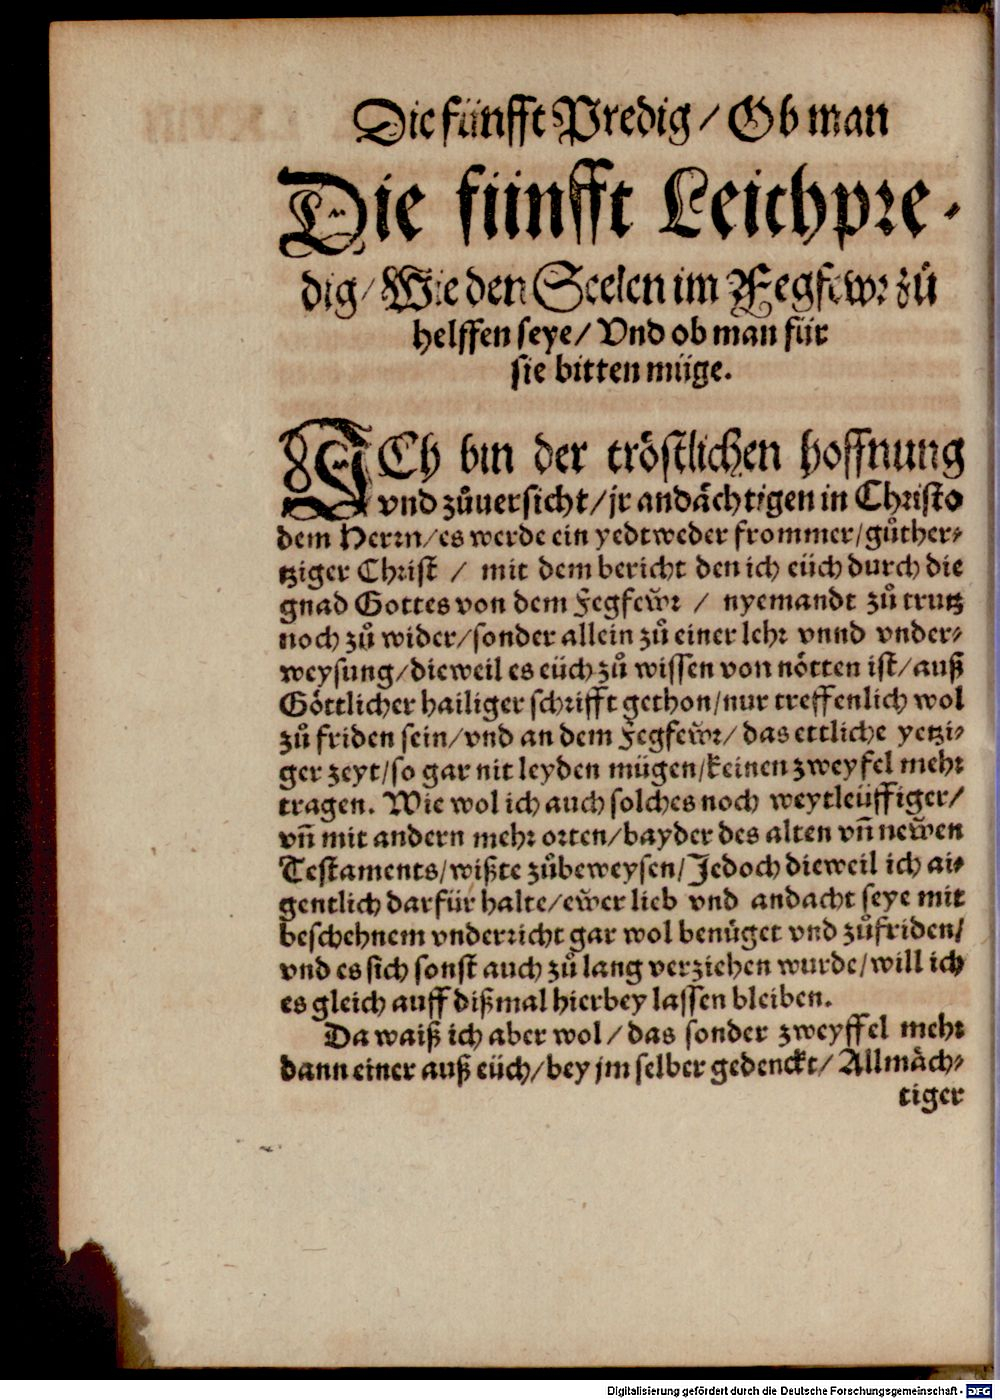 Die fünfft Predig / Ob man
Die fünfft Leichpre-
dig / Wie den Seelen im Fegfewr zů
helffen seye / Vnd ob man für
sie bitten müge.
ICh bin der tröstlichen hoffnung
vnd zůuersicht / jr andächtigen in Christo
dem Herrn / es werde ein yedtweder frommer / gůther-
tziger Christ / mit dem bericht den ich eüch durch die
gnad Gottes von dem Fegfewͤr / nyemandt zů trutz
noch zů wider / sonder allein zů einer lehr vnnd vnder-
weysung / dieweil es eüch zů wissen von nötten ist / auß
Göttlicher hailiger schrifft gethon / nur treffenlich wol
zů friden sein / vnd an dem Fegfewͤr / das ettliche yetzi-
ger zeyt / so gar nit leyden mügen / keinen zweyfel mehr
tragen. Wie wol ich auch solches noch weytleüffiger /
vñ mit andern mehr orten / bayder des alten vñ newͤen
Testaments / wißte zůbeweysen / Jedoch dieweil ich ai-
gentlich darfür halte / ewͤer lieb vnd andacht seye mit
beschehnem vnderricht gar wol benüget vnd zůfriden /
vnd es sich sonst auch zů lang verziehen wurde / will ich
es gleich auff dißmal hierbey lassen bleiben.
Da waiß ich aber wol / das sonder zweyffel mehr
dann einer auß eüch / bey jm selber gedenckt / Allmäch-
tiger
Digitalisierung gefördert durch die Deutsche Forschungsgemeinschaft - DFG